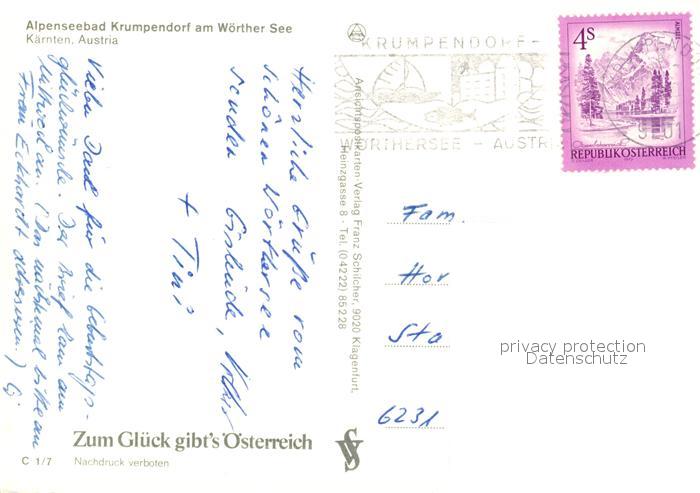 Alpenseebad Krumpendorf am Wörther See
Kärnten, Austria
Herzliche Grüße vom
schönen Wörthersee
senden Gislinde, Volker
+ Tini
Vielen Dank für die Geburtstags-
glückwünsche. Der Brief kam am
Mittwoch an. (Das nächste mal bitte an
Frau Eckhardt adressieren.)
Ansichtspostkarten-Verlag Franz Schilcher, 9020 Klagenfurt,
Heinzgasse 8 · Tel. (04222) 85228
KRUMPENDORF -
WÖRTHERSEE - AUSTRIA
4s
REPUBLIK ÖSTERREICH
Fam.
Hor
Sta
6231
privacy protection
Datenschutz
Zum Glück gibt's Österreich
C 1/7 Nachdruck verboten